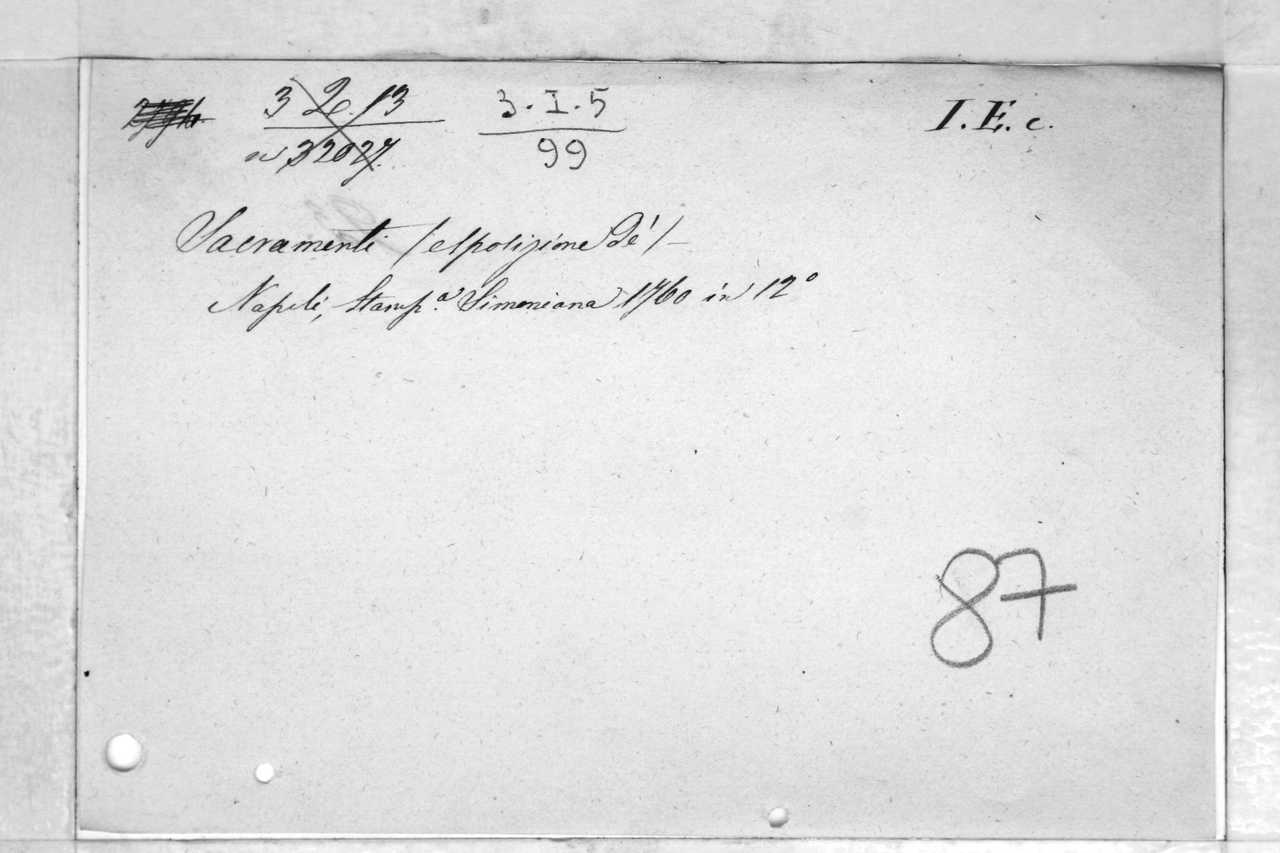 3 2 13 3.I.5 I.E.c.
n 32027. 99
Sacramenti (esposizione de') -
Napoli, Stamp.a Simoniana 1760 in 12°
87